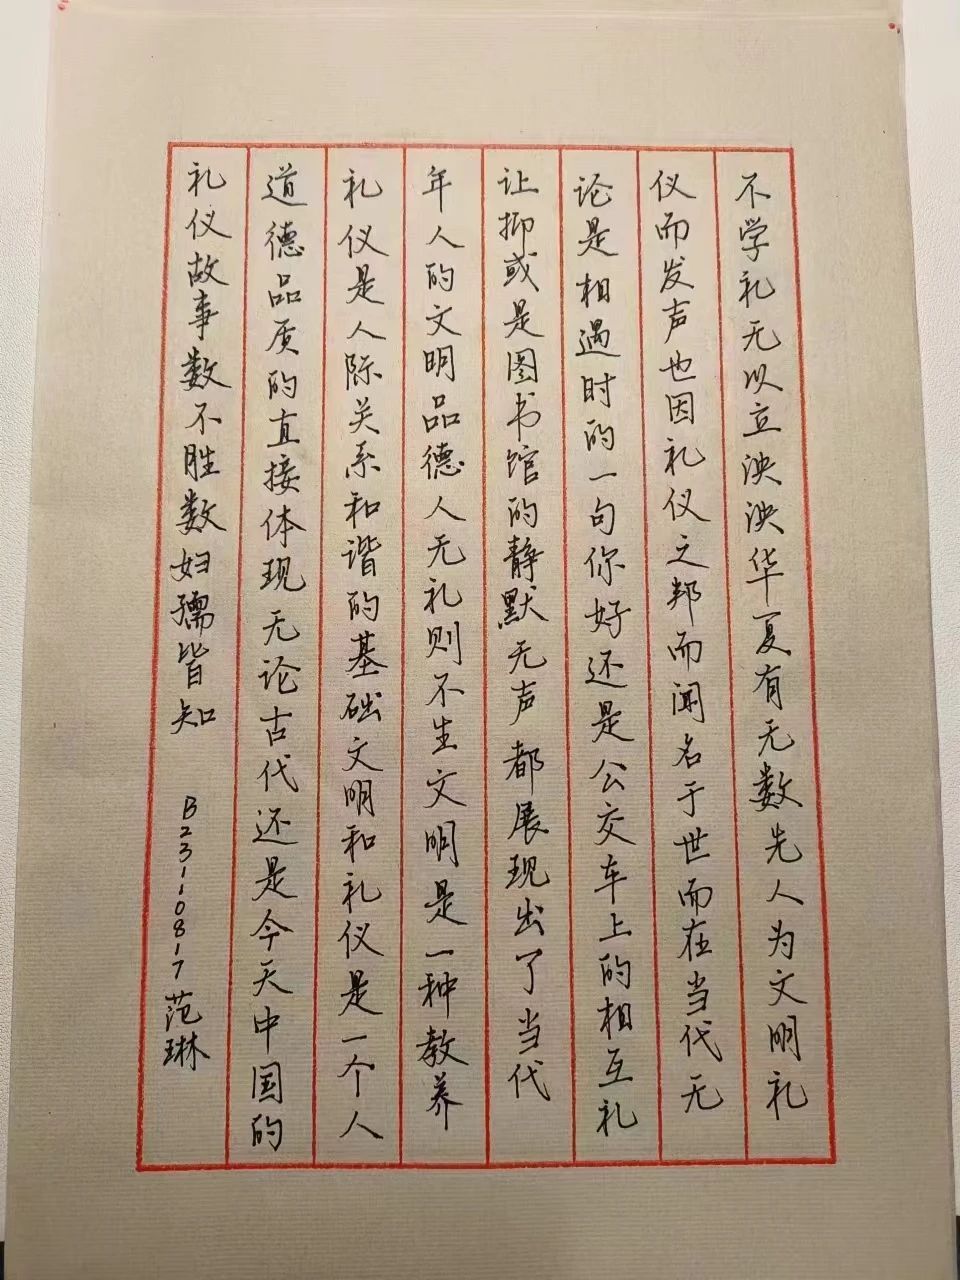 不学礼无以立泱泱华夏有无数先人为文明礼
仪而发声也因礼仪之邦而闻名于世而在当代无
论是相遇时的一句你好还是公交车上的相互礼
让抑或是图书馆的静默无声都展现出了当代
年人的文明品德人无礼则不生文明是一种教养
礼仪是人际关系和谐的基础文明和礼仪是一个人
道德品质的直接体现无论古代还是今天中国的
礼仪故事数不胜数妇孺皆知 B23110817范琳